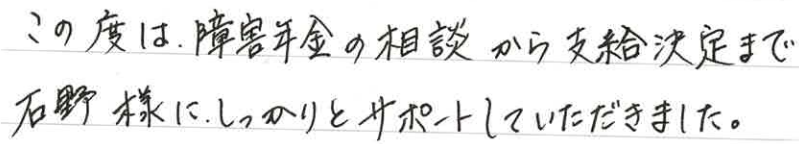 この度は、障害年金の相談から支給決定まで
石野様に、しっかりとサポートしていただきました。